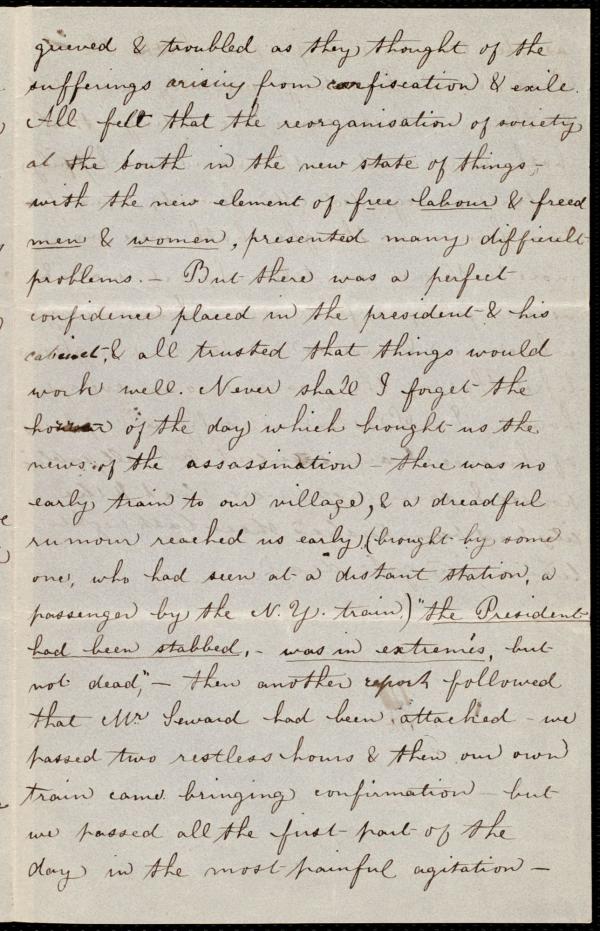 grieved & troubled as they thought of the
sufferings arising from confiscation & exile.
All felt that the reorganisation of society
at the South in the new state of things -
with the new element of free labour & freed
men & women, presented many difficult
problems. - But there was a perfect
confidence placed in the president & his
cabinet, & all trusted that things would
work well. Never shall I forget the
horror of the day which brought us the
news of the assassination - there was no
early train to our village, & a dreadful
rumour reached us early (brought by some
one, who had seen at a distant station, a
passenger by the N. Y. train) "the President
had been stabbed, - was in extremis, but
not dead," - then another report followed
that Mr Seward had been attacked - we
passed two restless hours & then our own
train came bringing confirmation - but
we passed all the first part of the
day in the most painful agitation -